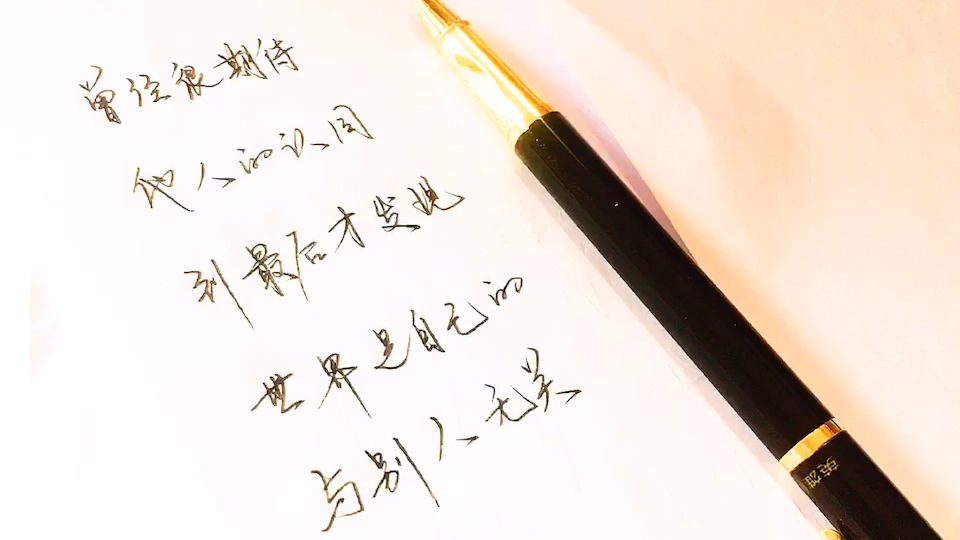 曾经很期待
他人的认同
到最后才发现
世界是自己的
与别人无关
英雄